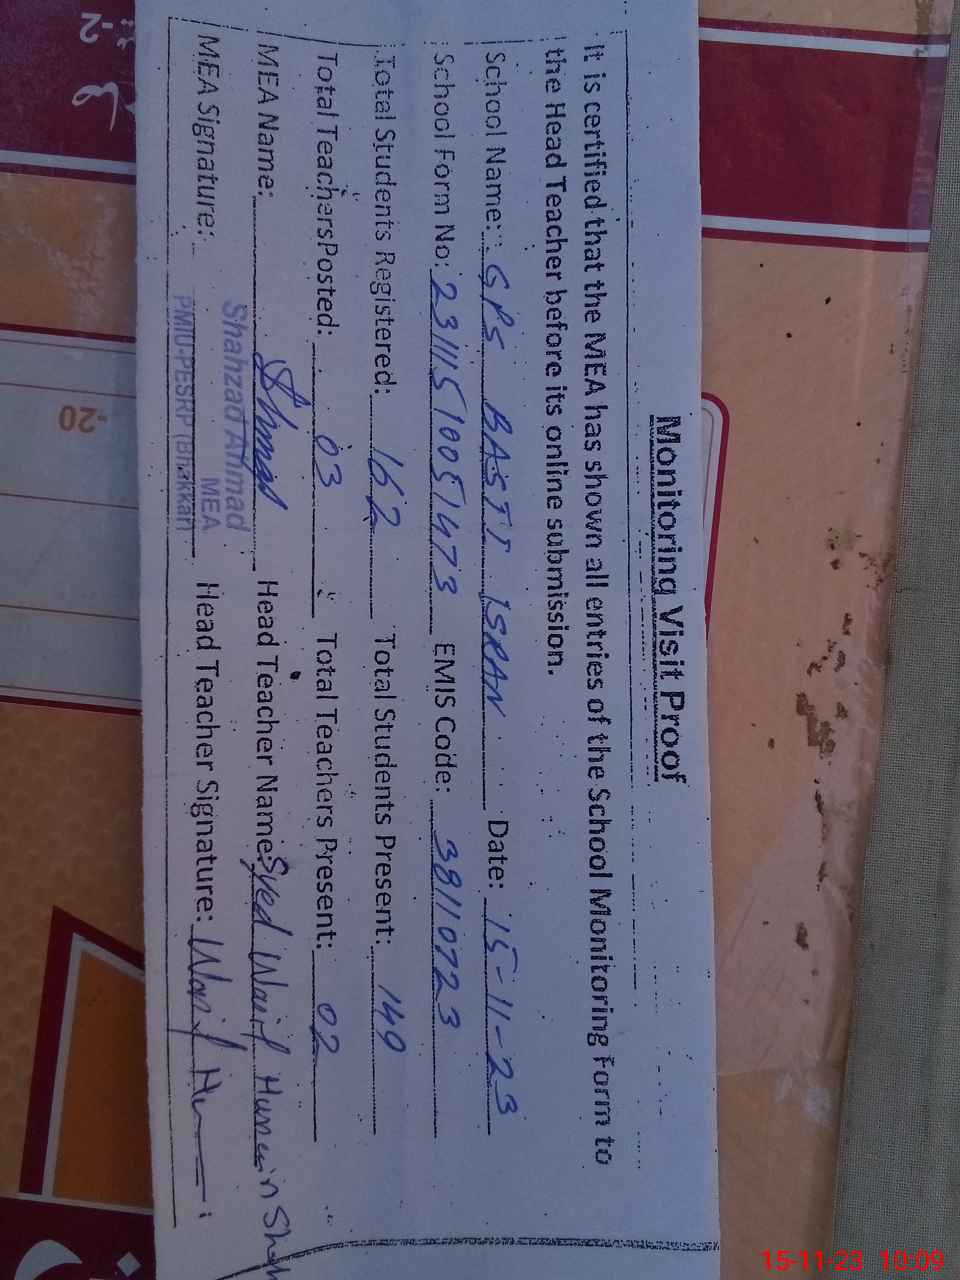 Monitoring Visit Proof
It is certified that the MEA has shown all entries of the School Monitoring Form to
the Head Teacher before its online submission.
School Name: GPS BASTI ISRAN Date: 15-11-23
School Form No: 23111510051473 EMIS Code: 38110723
Total Students Registered: 162 Total Students Present: 149
Total TeachersPosted: 03 Total Teachers Present: 02
MEA Name: Head Teacher Name: Syed Wasif Hussain Shah
Shahzad Ahmad
MEA
PMIU-PESRP (Bhakkar)
MEA Signature: Head Teacher Signature: Wasif
-2
-20
15-11-23 10:09